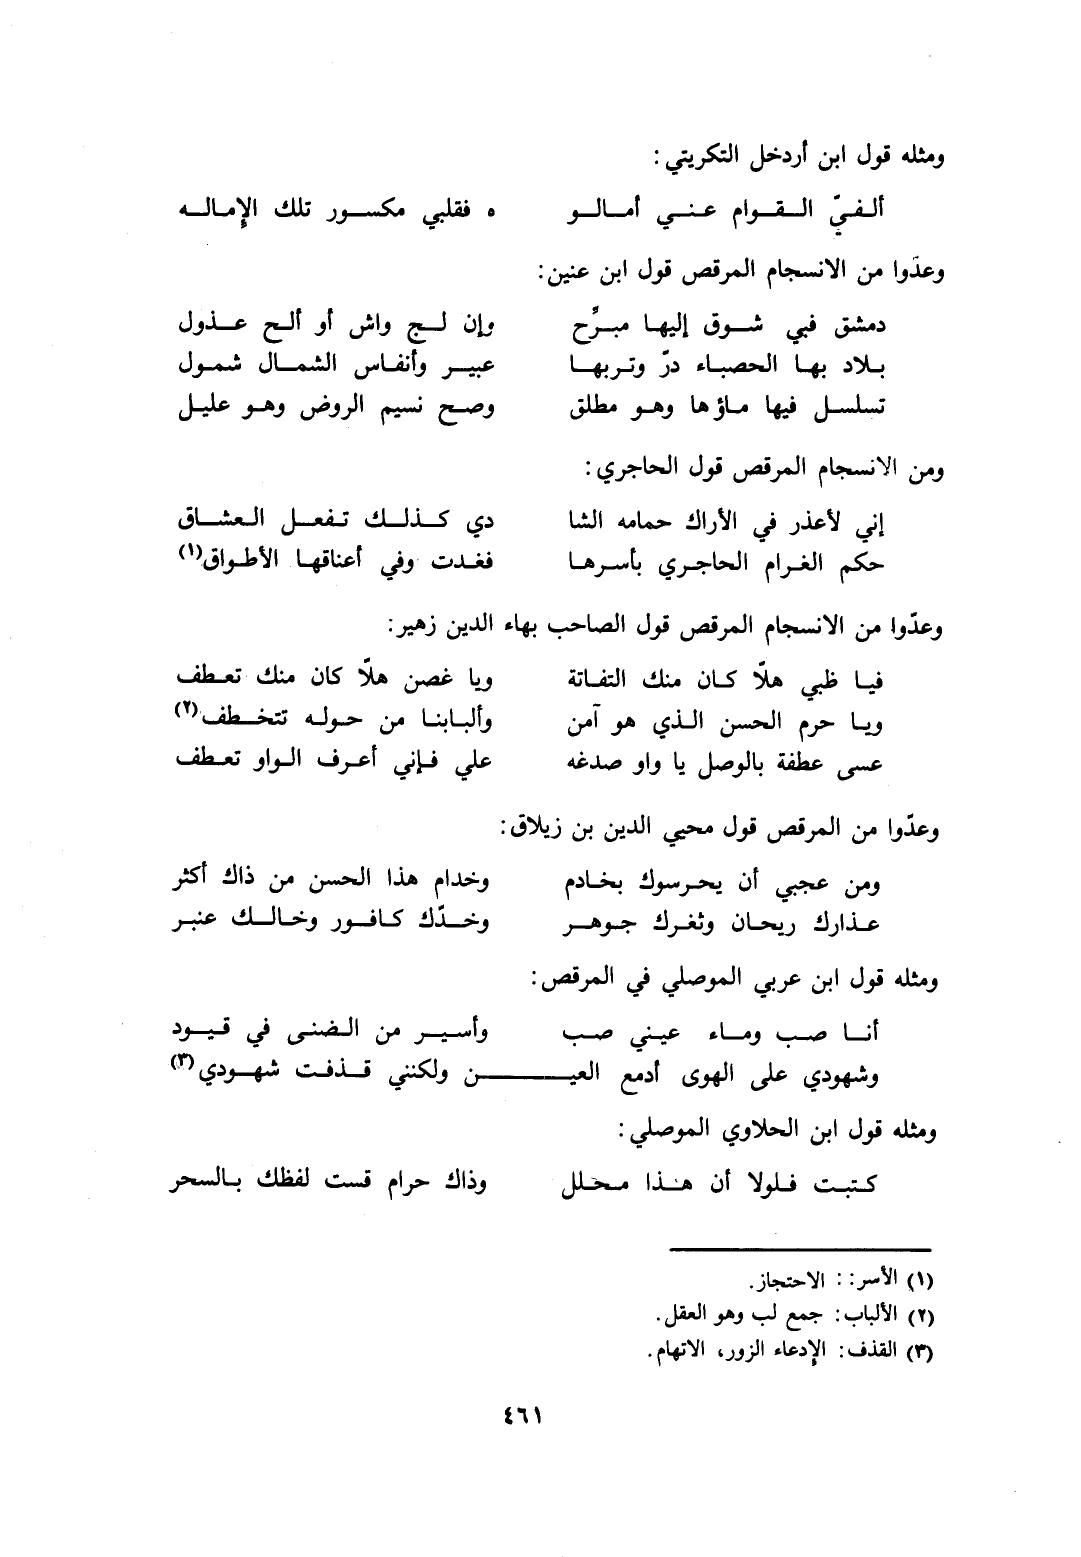 ومثله قول ابن أردخل التكريتي:
ألفيّ القوام عني أمالو ه فقلبي مكسور تلك الإماله
وعدّوا من الانسجام المرقص قول ابن عنين:
دمشق فبي شوق إليها مبرِّح وإن لج واش أو ألح عذول
بلاد بها الحصباء درّ وتربها عبير وأنفاس الشمال شمول
تسلسل فيها ماؤها وهو مطلق وصح نسيم الروض وهو عليل
ومن الانسجام المرقص قول الحاجري:
إني لأعذر في الأراك حمامه الشا دي كذلك تفعل العشاق
حكم الغرام الحاجري بأسرها فغدت وفي أعناقها الأطواق(١)
وعدّوا من الانسجام المرقص قول الصاحب بهاء الدين زهير:
فيا ظبي هلّا كان منك التفاتة ويا غصن هلّا كان منك تعطف
ويا حرم الحسن الذي هو آمن وألبابنا من حوله تتخطف(٢)
عسى عطفة بالوصل يا واو صدغه علي فإني أعرف الواو تعطف
وعدّوا من المرقص قول محيي الدين بن زيلاق:
ومن عجبي أن يحرسوك بخادم وخدام هذا الحسن من ذاك أكثر
عذارك ريحان وثغرك جوهر وخدّك كافور وخالك عنبر
ومثله قول ابن عربي الموصلي في المرقص:
أنا صب وماء عيني صب وأسير من الضنى في قيود
وشهودي على الهوى أدمع العيـن ولكنني قذفت شهودي(٣)
ومثله قول ابن الحلاوي الموصلي:
كتبت فلولا أن هذا محلل وذاك حرام قست لفظك بالسحر
(١) الأسر:: الاحتجاز.
(٢) الألباب: جمع لب وهو العقل.
(٣) القذف: الإدعاء الزور، الاتهام.
٤٦١